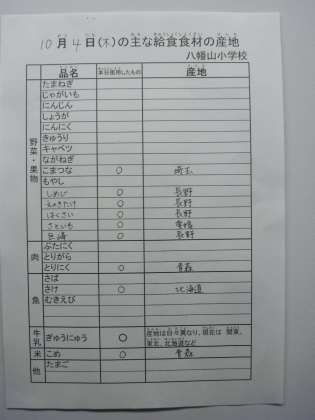 10月4日(木)の主な給食食材の産地
八幡山小学校
品名 本日使用したもの 産地
野菜・果物
たまねぎ
じゃがいも
にんじん
しょうが
にんにく
きゅうり
キャベツ
ながねぎ
こまつな ○ 埼玉
もやし
しめじ ○ 長野
えのきたけ ○ 長野
はくさい ○ 長野
さといも ○
○ 長野
肉
ぶたにく
とりがら
とりにく ○ 青森
魚
さば
さけ ○ 北海道
むきえび
牛乳
ぎゅうにゅう ○ 産地は日々異なり、現在は 関東、
東北、北海道など
米 こめ ○ 青森
他 たまご